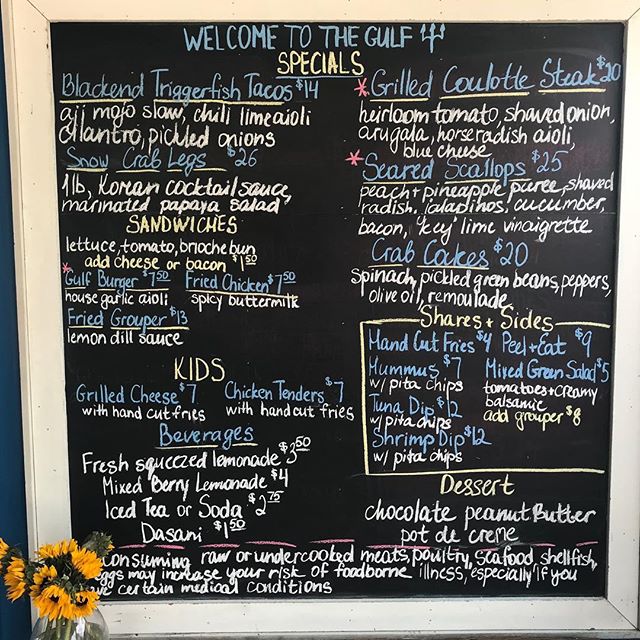 WELCOME TO THE GULF
SPECIALS
Blackend Triggerfish Tacos $14
aji mojo slaw, chili lime aioli
cilantro, pickled onions
Snow Crab Legs $26
1lb, Korean cocktail sauce,
marinated papaya salad
SANDWICHES
lettuce, tomato, brioche bun
add cheese or bacon $1.50
*Gulf Burger $7.50 Fried Chicken $7.50
house garlic aioli spicy buttermilk
Fried Grouper $13
lemon dill sauce
KIDS
Grilled Cheese $7 Chicken Tenders $7
with hand cut fries with hand cut fries
Beverages
Fresh squeezed lemonade $3.50
Mixed Berry Lemonade $4
Iced Tea or Soda $2.75
Dasani $1.50
*Grilled Coulotte Steak $20
heirloom tomato, shaved onion,
arugala, horseradish aioli,
blue cheese
*Seared Scallops $25
peach + pineapple puree, shaved
radish, jalapinos, cucumber,
bacon, key lime vinaigrette
Crab Cackes $20
spinach, pickled green beans, peppers,
olive oil, remoulade
Shares + Sides
Hand Cut Fries $4 Peel + Eat $9
Hummus $7 Mixed Green Salad $5
w/ pita chips tomatoes + creamy
balsamic
Tuna Dip $12 add grouper $8
w/ pita chips
Shrimp Dip $12
w/ pita chips
Dessert
chocolate peanut Butter
pot de creme
consuming raw or undercooked meats, poultry, seafood, shellfish,
eggs may increase your risk of foodborne illness, especially if you
certain medical conditions